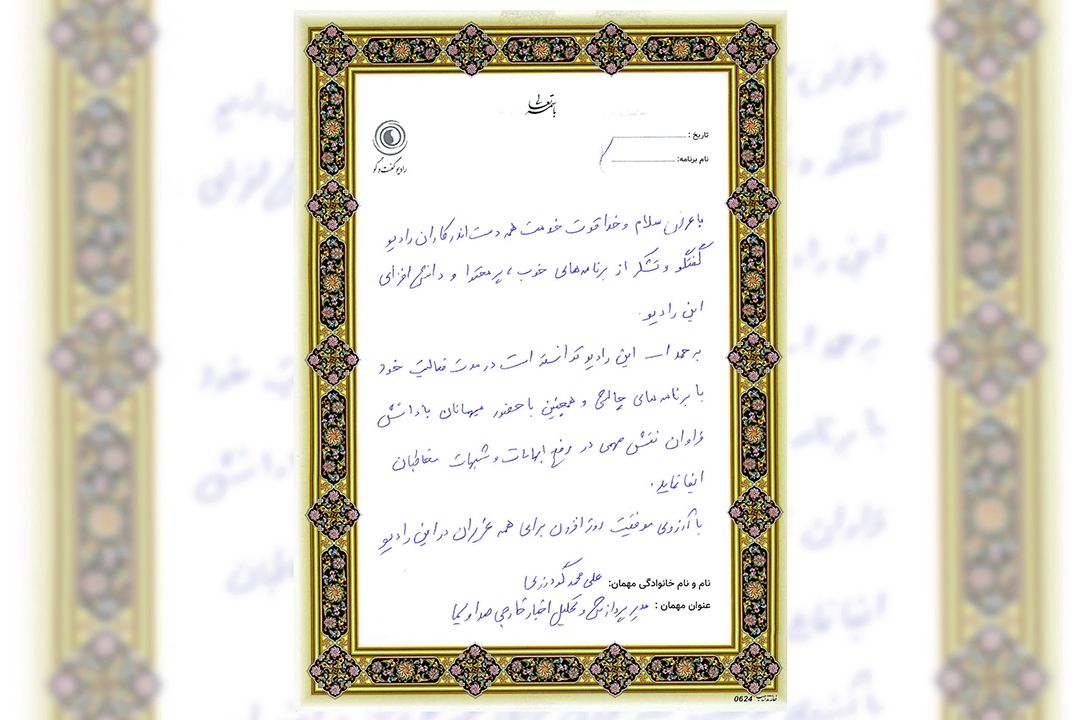 باسمه تعالی
تاریخ :
نام برنامه:
رادیو گفت و گو
با عرض سلام و خدا قوت خدمت همه دست اندرکاران رادیو
گفتگو و تشکر از برنامه‌های خوب ، پر محتوا و دانش افزای
این رادیو.
به حمد اله این رادیو توانسته است در مدت فعالیت خود
با برنامه‌های چالشی و همچنین با حضور میهمانان با دانش
فراوان نقش مهمی در رفع ابهامات و شبهات مخاطبان
ایفا نماید.
با آرزوی موفقیت روز افزون برای همه عزیزان در این رادیو
نام و نام خانوادگی مهمان: علی محمد گودرزی
عنوان مهمان : مدیر پردازش و تحلیل اخبار خارجی صدا و سیما
0624